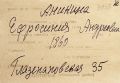 Аникина
Ефросиния Андреевна
1960
Глазенаповская 35